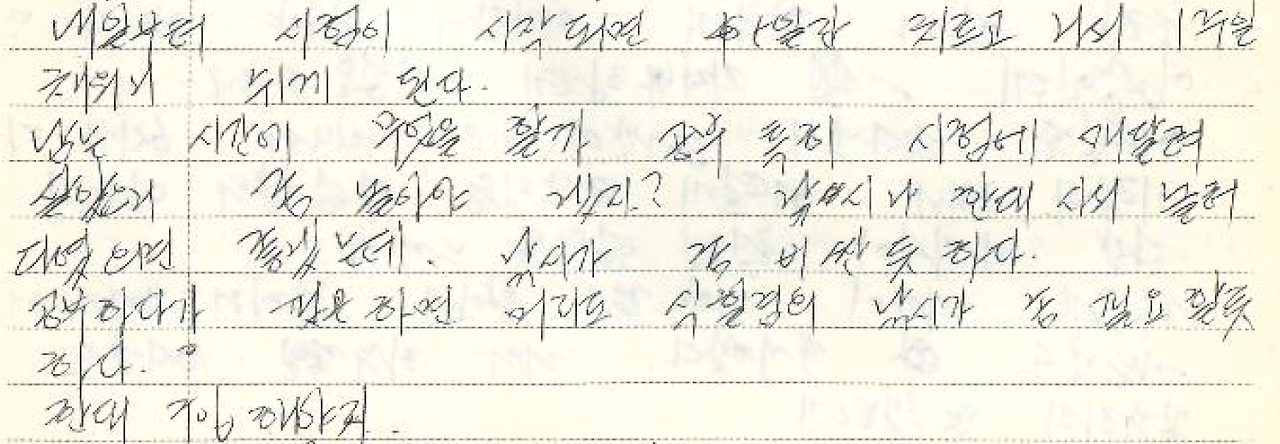 내일부터 시험이 시작되면 4일간 치르고 나서 1주일
채워서 쉬게 된다.
남는 시간에 무엇을 할까 공부 특히 시험에 매달려
살았으니 좀 놀아야 겠지? 낚시나 한대 사서 놀러
다녔으면 좋겠는데. 낚시가 좀 비싼듯 하다.
공부하다가 싫은 하면 머리도 식힐겸의 낚시가 좀 필요 할듯
하다.
한대 구입해야지.